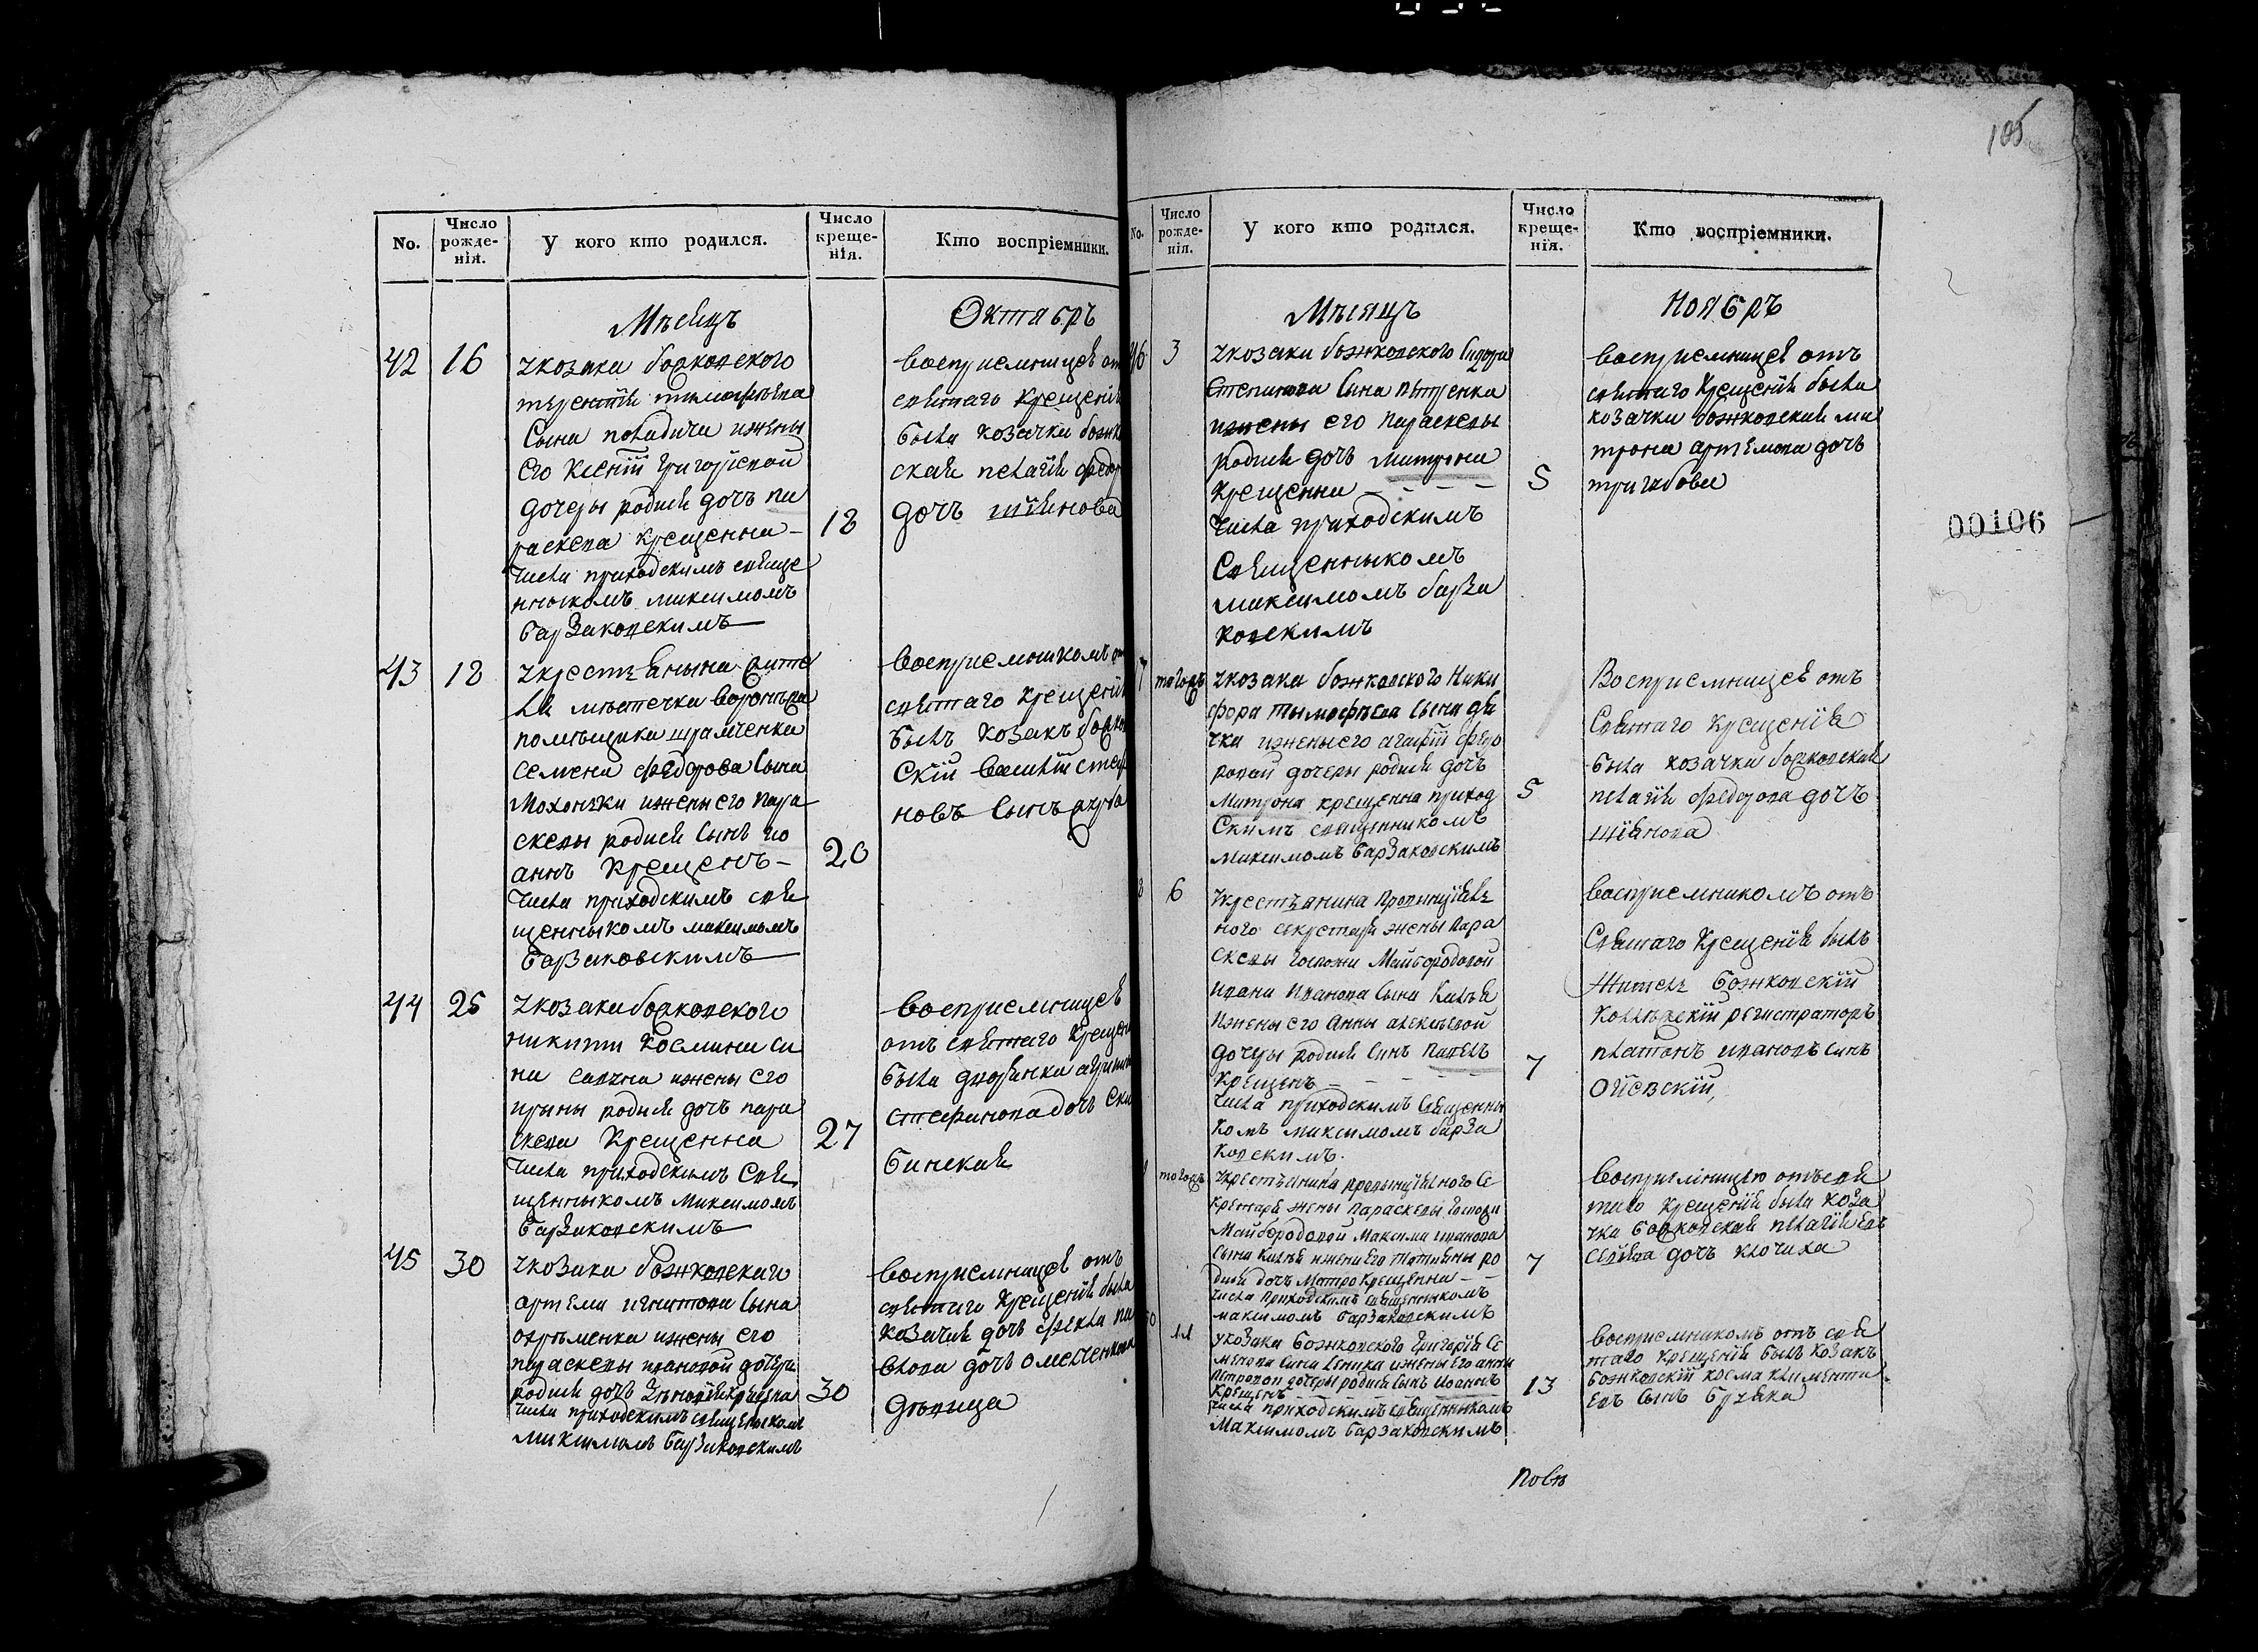 105
00106
No.
Число рожденія.
У кого кто родился.
Число крещенія.
Кто воспріемники.
Мѣсяцъ Октябръ
42 16
Укозака божковского
терентія тимофѣева
Сына
ижены
его Ксеніи григориевой
дочеры родися дочъ па
раскева крещенна - 18
Числа приходскимъ свяще
нныкомъ максимомъ
барзаковскимъ
восприемницея
святаго крещения
была козачка
ская пелагия
дочъ
43 18
Укрестянына
мѣстечка
помѣщика
Семена федорова Сына
ижены его пара
скевы родися Сынъ ио
аннъ Крещенъ - 20
Числа приходскимъ свя
щенныкомъ максимомъ
барзаковскимъ
восприемникомъ
святаго крещения
былъ козакъ
скій василій
новъ Сынъ
44 25
Укозака божковского
никити Космини си
на савича ижены его
ирины родися дочъ пара
скева Крещенна 27
Числа приходскимъ Свя
щенныкомъ Максимомъ
барзаковскимъ
восприемницея
отъ святаго
была дворянка
стефанова дочъ
бинская
45 30
Укозака божковскаго
артема игнатова Сына
охрѣменка ижены его
параскевы ивановой дочери
родися дочъ 30
Числа приходскимъ священыкомъ
максимомъ барзаковскимъ
восприемницея отъ
святаго крещения была
козачая дочъ фекла па
влова дочъ
дѣвица
No.
Число рожденія.
У кого кто родился.
Число крещенія.
Кто воспріемники.
Мѣсяцъ Ноябръ
46 3
Укозака божковского Сидора
Степанова Сына пѣтренка
ижены его параскевы
родися дочъ Матрона
крещенна - - - - 5
Числа приходскимъ
Священныкомъ
максимомъ барза
ковскимъ
восприемницея отъ
святаго крещения была
козачка божковская ма
трона артемова дочъ
7 тогожъ
Укозака божковского Ники
фора тымофѣева сына дя
чка ижены его агафіи федо
ровой дочеры родися дочъ
Матрона крещенна приход 5
Скимъ священникомъ
максимомъ барзаковскимъ
Восприемницея отъ
Святаго крещения
была козачка божковская
пелагія федорова дочъ
шіянова
8 6
Укрестьянина Провинціяль
ного секретаря жены пара
скевы госпожи Майбородовой
ивана иванова Сына Киляя
ижены его Анны алексѣевой
дочеры родися синъ павелъ
крещенъ - - - - 7
Числа приходскимъ священны
комъ максимомъ барза
ковскимъ.
восприемникомъ отъ
Святаго крещения былъ
Жителъ божковскій
коллѣжскій регистраторъ
платонъ ивановъ синъ
тогожъ
Укрестьянина провинціялного Се
кретаря жены параскевы госпожи
Майбородовой Максима иванова
Сына Киляя ижени его татияны ро
дися дочъ Матро Крещенна - - 7
Числа приходскимъ священныкомъ
максимомъ барзаковскимъ
восприемницею отъ свя
таго крещения была коза
чка божковская пелагия
дочъ клочиха
50 11
Укозака божковского григория Се
менова Сина ижены его анны
петровой дочеры родися Сынъ иоаннъ
Крещенъ - - - - 13
Числа приходскимъ священныкомъ
Максимомъ барзаковскимъ
восприемникомъ отъ свя
таго крещения былъ козакъ
божковскій косма клименти
евъ сынъ